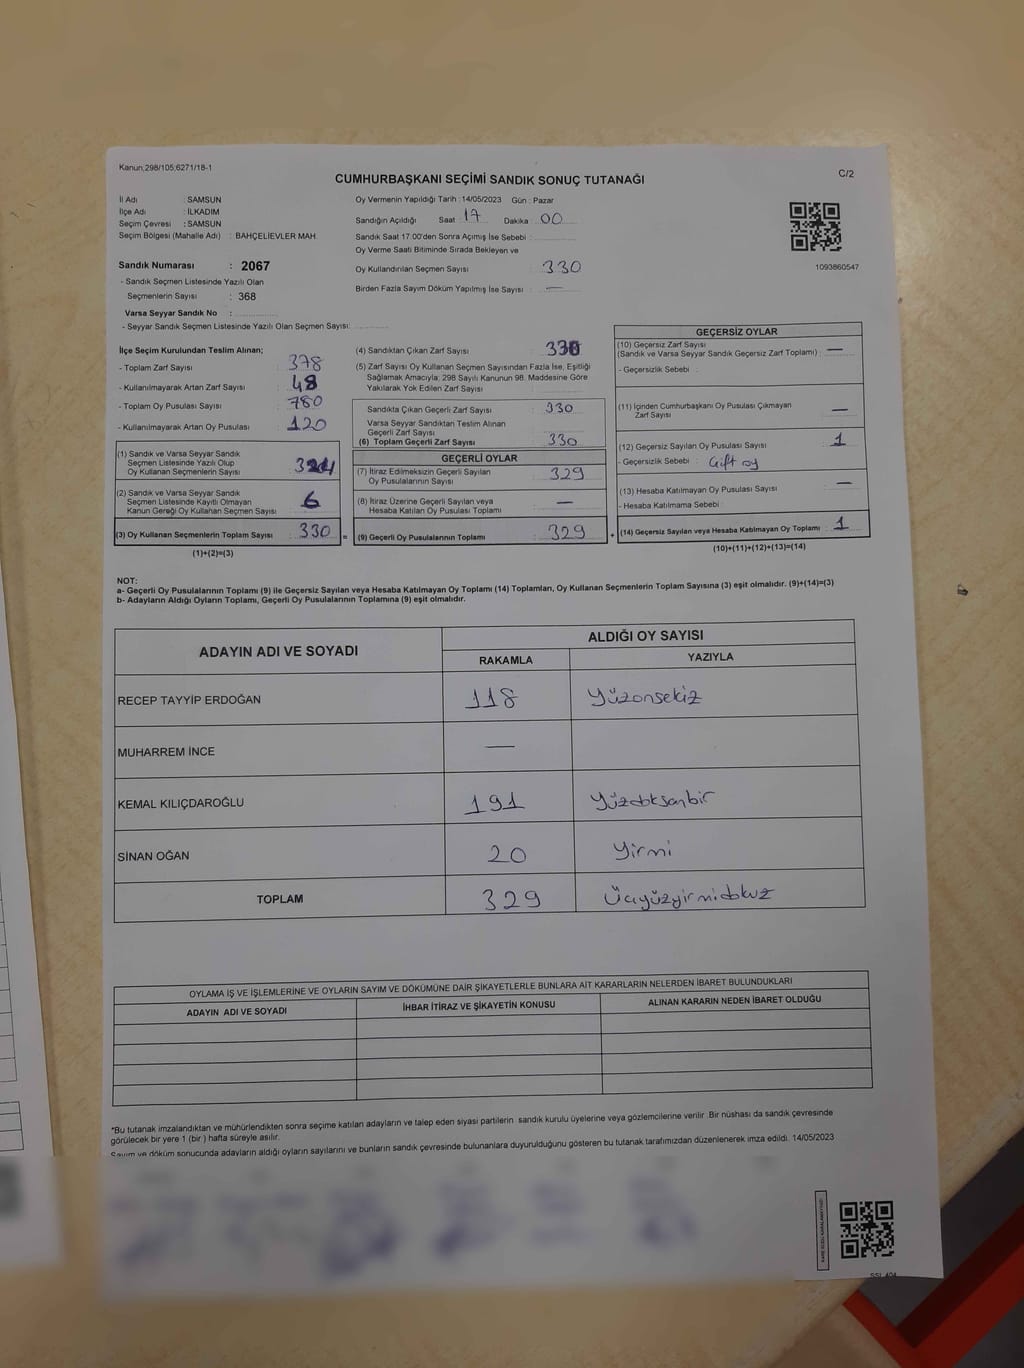 Kanun,298/105;6271/18-1
CUMHURBAŞKANI SEÇİMİ SANDIK SONUÇ TUTANAĞI
C/2
İl Adı : SAMSUN
İlçe Adı : İLKADIM
Seçim Çevresi : SAMSUN
Seçim Bölgesi (Mahalle Adı) : BAHÇELİEVLER MAH.
Sandık Numarası : 2067
- Sandık Seçmen Listesinde Yazılı Olan
Seçmenlerin Sayısı : 368
Varsa Seyyar Sandık No :
- Seyyar Sandık Seçmen Listesinde Yazılı Olan Seçmen Sayısı:
Oy Vermenin Yapıldığı Tarih : 14/05/2023 Gün : Pazar
Sandığın Açıldığı Saat 17 Dakika 00
Sandık Saat 17:00'den Sonra Açımış İse Sebebi :
Oy Verme Saati Bitiminde Sırada Bekleyen ve
Oy Kullandırılan Seçmen Sayısı : 330
Birden Fazla Sayım Döküm Yapılmış İse Sayısı : —
1093860547
İlçe Seçim Kurulundan Teslim Alınan;
- Toplam Zarf Sayısı : 378
- Kullanılmayarak Artan Zarf Sayısı : 48
- Toplam Oy Pusulası Sayısı : 780
- Kullanılmayarak Artan Oy Pusulası : 120
(1) Sandık ve Varsa Seyyar Sandık
Seçmen Listesinde Yazılı Olup
Oy Kullanan Seçmenlerin Sayısı 324
(2) Sandık ve Varsa Seyyar Sandık
Seçmen Listesinde Kayıtlı Olmayan
Kanun Gereği Oy Kullanan Seçmen Sayısı 6
(3) Oy Kullanan Seçmenlerin Toplam Sayısı : 330 =
(1)+(2)=(3)
(4) Sandıktan Çıkan Zarf Sayısı : 330
(5) Zarf Sayısı Oy Kullanan Seçmen Sayısından Fazla İse, Eşitliği
Sağlamak Amacıyla; 298 Sayılı Kanunun 98. Maddesine Göre
Yakılarak Yok Edilen Zarf Sayısı
Sandıkta Çıkan Geçerli Zarf Sayısı : 330
Varsa Seyyar Sandıktan Teslim Alınan
Geçerli Zarf Sayısı
(6) Toplam Geçerli Zarf Sayısı : 330
GEÇERLİ OYLAR
(7) İtiraz Edilmeksizin Geçerli Sayılan
Oy Pusulalarının Sayısı : 329
(8) İtiraz Üzerine Geçerli Sayılan veya
Hesaba Katılan Oy Pusulası Toplamı : —
(9) Geçerli Oy Pusulalarının Toplamı : 329 +
GEÇERSİZ OYLAR
(10) Geçersiz Zarf Sayısı
(Sandık ve Varsa Seyyar Sandık Geçersiz Zarf Toplamı) : —
- Geçersizlik Sebebi :
(11) İçinden Cumhurbaşkanı Oy Pusulası Çıkmayan
Zarf Sayısı : —
(12) Geçersiz Sayılan Oy Pusulası Sayısı : 1
- Geçersizlik Sebebi : Çift oy
(13) Hesaba Katılmayan Oy Pusulası Sayısı : —
- Hesaba Katılmama Sebebi :
(14) Geçersiz Sayılan veya Hesaba Katılmayan Oy Toplamı : 1
(10)+(11)+(12)+(13)=(14)
NOT:
a- Geçerli Oy Pusulalarının Toplamı (9) ile Geçersiz Sayılan veya Hesaba Katılmayan Oy Toplamı (14) Toplamları, Oy Kullanan Seçmenlerin Toplam Sayısına (3) eşit olmalıdır. (9)+(14)=(3)
b- Adayların Aldığı Oyların Toplamı, Geçerli Oy Pusulalarının Toplamına (9) eşit olmalıdır.
ADAYIN ADI VE SOYADI
ALDIĞI OY SAYISI
RAKAMLA YAZIYLA
RECEP TAYYİP ERDOĞAN 118 Yüzonsekiz
MUHARREM İNCE —
KEMAL KILIÇDAROĞLU 191 Yüzdoksanbir
SİNAN OĞAN 20 Yirmi
TOPLAM 329 Üçyüzyirmidokuz
OYLAMA İŞ VE İŞLEMLERİNE VE OYLARIN SAYIM VE DÖKÜMÜNE DAİR ŞİKAYETLERLE BUNLARA AİT KARARLARIN NELERDEN İBARET BULUNDUKLARI
ADAYIN ADI VE SOYADI İHBAR İTİRAZ VE ŞİKAYETİN KONUSU ALINAN KARARIN NEDEN İBARET OLDUĞU
*Bu tutanak imzalandıktan ve mühürlendikten sonra seçime katılan adayların ve talep eden siyasi partilerin sandık kurulu üyelerine veya gözlemcilerine verilir. Bir nüshası da sandık çevresinde
görülecek bir yere 1 (bir ) hafta süreyle asılır.
Sayım ve döküm sonucunda adayların aldığı oyların sayılarını ve bunların sandık çevresinde bulunanlara duyurulduğunu gösteren bu tutanak tarafımızdan düzenlenerek imza edildi. 14/05/2023